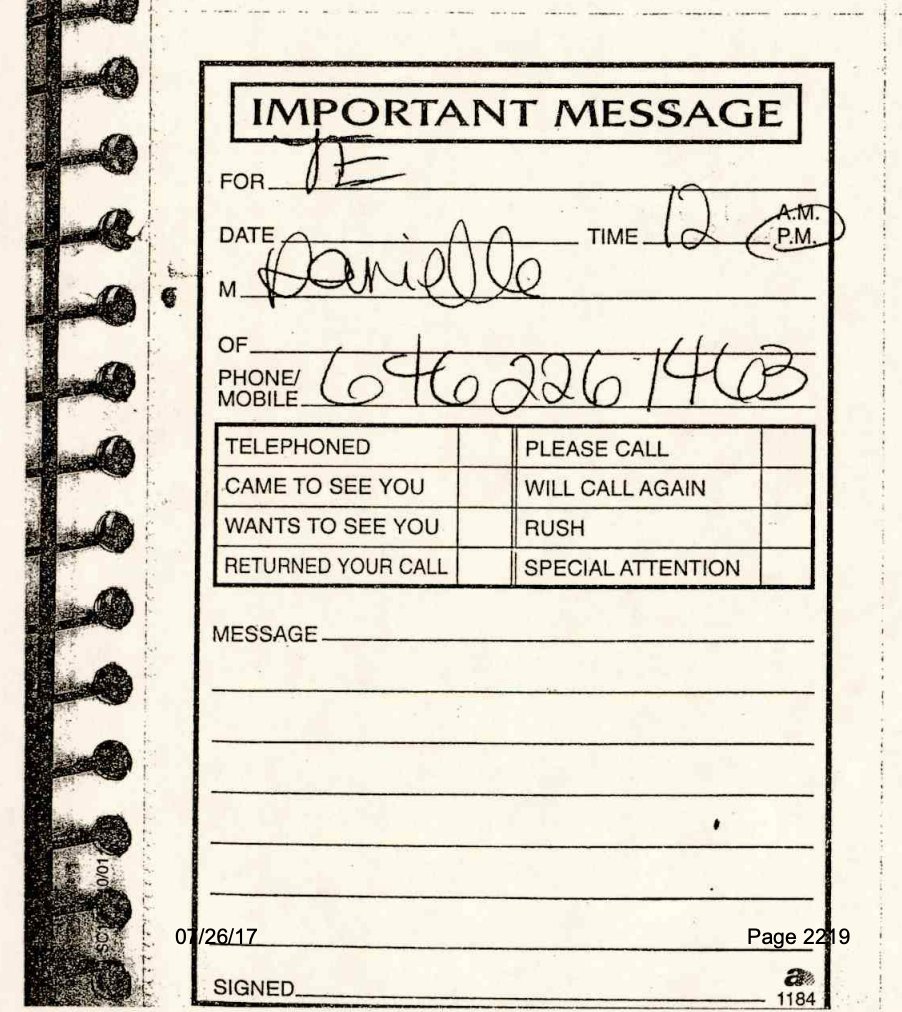 IMPORTANT MESSAGE
FOR JE
DATE TIME 12 A.M. P.M.
M Danielle
OF
PHONE/ MOBILE 646 226 1463
TELEPHONED PLEASE CALL
CAME TO SEE YOU WILL CALL AGAIN
WANTS TO SEE YOU RUSH
RETURNED YOUR CALL SPECIAL ATTENTION
MESSAGE
07/26/17 Page 2219
SIGNED
a
1184